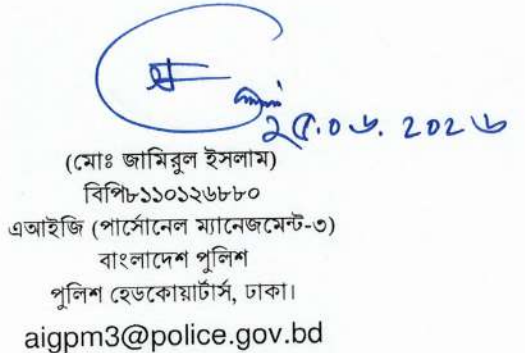 ২৫.০৬.২০২৬
(মোঃ জামিরুল ইসলাম)
বিপি৮১১০১২৬৮৮০
এআইজি (পার্সোনেল ম্যানেজমেন্ট-৩)
বাংলাদেশ পুলিশ
পুলিশ হেডকোয়ার্টার্স, ঢাকা।
aigpm3@police.gov.bd